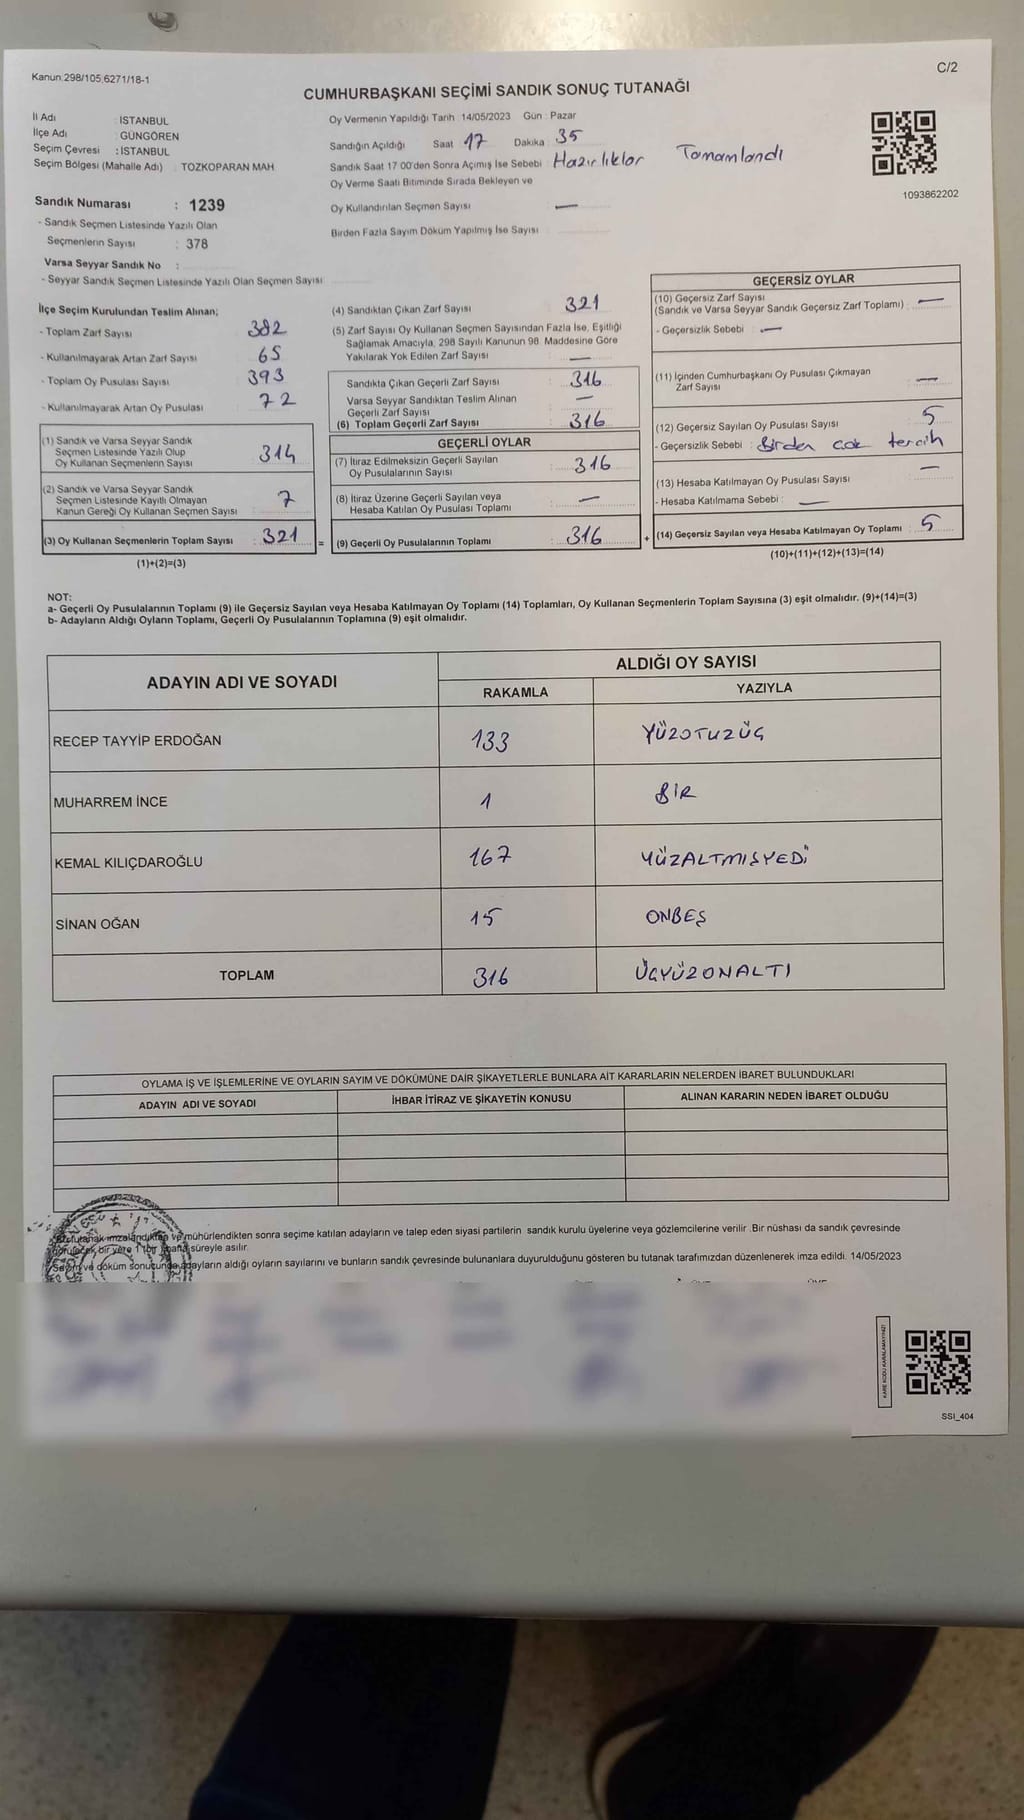 Kanun.298/105,6271/18-1
C/2
CUMHURBAŞKANI SEÇİMİ SANDIK SONUÇ TUTANAĞI
İl Adı : İSTANBUL
İlçe Adı : GÜNGÖREN
Seçim Çevresi : İSTANBUL
Seçim Bölgesi (Mahalle Adı) : TOZKOPARAN MAH
Sandık Numarası : 1239
- Sandık Seçmen Listesinde Yazılı Olan
Seçmenlerin Sayısı : 378
Varsa Seyyar Sandık No :
- Seyyar Sandık Seçmen Listesinde Yazılı Olan Seçmen Sayısı
Oy Vermenin Yapıldığı Tarih : 14/05/2023 Gün : Pazar
Sandığın Açıldığı Saat 17 Dakika : 35
Sandık Saat 17:00'den Sonra Açımış İse Sebebi : Hazırlıklar Tamamlandı
Oy Verme Saati Bitiminde Sırada Bekleyen ve
Oy Kullandırılan Seçmen Sayısı : —
Birden Fazla Sayım Döküm Yapılmış İse Sayısı :
1093862202
İlçe Seçim Kurulundan Teslim Alınan;
- Toplam Zarf Sayısı : 382
- Kullanılmayarak Artan Zarf Sayısı : 65
- Toplam Oy Pusulası Sayısı : 393
- Kullanılmayarak Artan Oy Pusulası : 72
(1) Sandık ve Varsa Seyyar Sandık
Seçmen Listesinde Yazılı Olup
Oy Kullanan Seçmenlerin Sayısı : 314
(2) Sandık ve Varsa Seyyar Sandık
Seçmen Listesinde Kayıtlı Olmayan
Kanun Gereği Oy Kullanan Seçmen Sayısı : 7
(3) Oy Kullanan Seçmenlerin Toplam Sayısı : 321
(1)+(2)=(3)
=
(4) Sandıktan Çıkan Zarf Sayısı : 321
(5) Zarf Sayısı Oy Kullanan Seçmen Sayısından Fazla İse, Eşitliği
Sağlamak Amacıyla, 298 Sayılı Kanunun 98. Maddesine Göre
Yakılarak Yok Edilen Zarf Sayısı : —
Sandıkta Çıkan Geçerli Zarf Sayısı : 316
Varsa Seyyar Sandıktan Teslim Alınan
Geçerli Zarf Sayısı : —
(6) Toplam Geçerli Zarf Sayısı : 316
GEÇERLİ OYLAR
(7) İtiraz Edilmeksizin Geçerli Sayılan
Oy Pusulalarının Sayısı : 316
(8) İtiraz Üzerine Geçerli Sayılan veya
Hesaba Katılan Oy Pusulası Toplamı : —
(9) Geçerli Oy Pusulalarının Toplamı : 316
+
GEÇERSİZ OYLAR
(10) Geçersiz Zarf Sayısı
(Sandık ve Varsa Seyyar Sandık Geçersiz Zarf Toplamı) : —
- Geçersizlik Sebebi : —
(11) İçinden Cumhurbaşkanı Oy Pusulası Çıkmayan
Zarf Sayısı : —
(12) Geçersiz Sayılan Oy Pusulası Sayısı : 5
- Geçersizlik Sebebi : Birden çok tercih
(13) Hesaba Katılmayan Oy Pusulası Sayısı : —
- Hesaba Katılmama Sebebi : —
(14) Geçersiz Sayılan veya Hesaba Katılmayan Oy Toplamı : 5
(10)+(11)+(12)+(13)=(14)
NOT:
a- Geçerli Oy Pusulalarının Toplamı (9) ile Geçersiz Sayılan veya Hesaba Katılmayan Oy Toplamı (14) Toplamları, Oy Kullanan Seçmenlerin Toplam Sayısına (3) eşit olmalıdır. (9)+(14)=(3)
b- Adayların Aldığı Oyların Toplamı, Geçerli Oy Pusulalarının Toplamına (9) eşit olmalıdır.
ADAYIN ADI VE SOYADI
ALDIĞI OY SAYISI
RAKAMLA YAZIYLA
RECEP TAYYİP ERDOĞAN 133 YÜZOTUZÜÇ
MUHARREM İNCE 1 BİR
KEMAL KILIÇDAROĞLU 167 YÜZALTMIŞYEDİ
SİNAN OĞAN 15 ONBEŞ
TOPLAM 316 ÜÇYÜZONALTI
OYLAMA İŞ VE İŞLEMLERİNE VE OYLARIN SAYIM VE DÖKÜMÜNE DAİR ŞİKAYETLERLE BUNLARA AİT KARARLARIN NELERDEN İBARET BULUNDUKLARI
ADAYIN ADI VE SOYADI İHBAR İTİRAZ VE ŞİKAYETİN KONUSU ALINAN KARARIN NEDEN İBARET OLDUĞU
tutanak imzalandıktan ve mühürlendikten sonra seçime katılan adayların ve talep eden siyasi partilerin sandık kurulu üyelerine veya gözlemcilerine verilir .Bir nüshası da sandık çevresinde
bir yere 1 hafta süreyle asılır.
Sayım ve döküm sonucunda adayların aldığı oyların sayılarını ve bunların sandık çevresinde bulunanlara duyurulduğunu gösteren bu tutanak tarafımızdan düzenlenerek imza edildi. 14/05/2023
KARE KODU KARALAMAYINIZ!
SSI_404